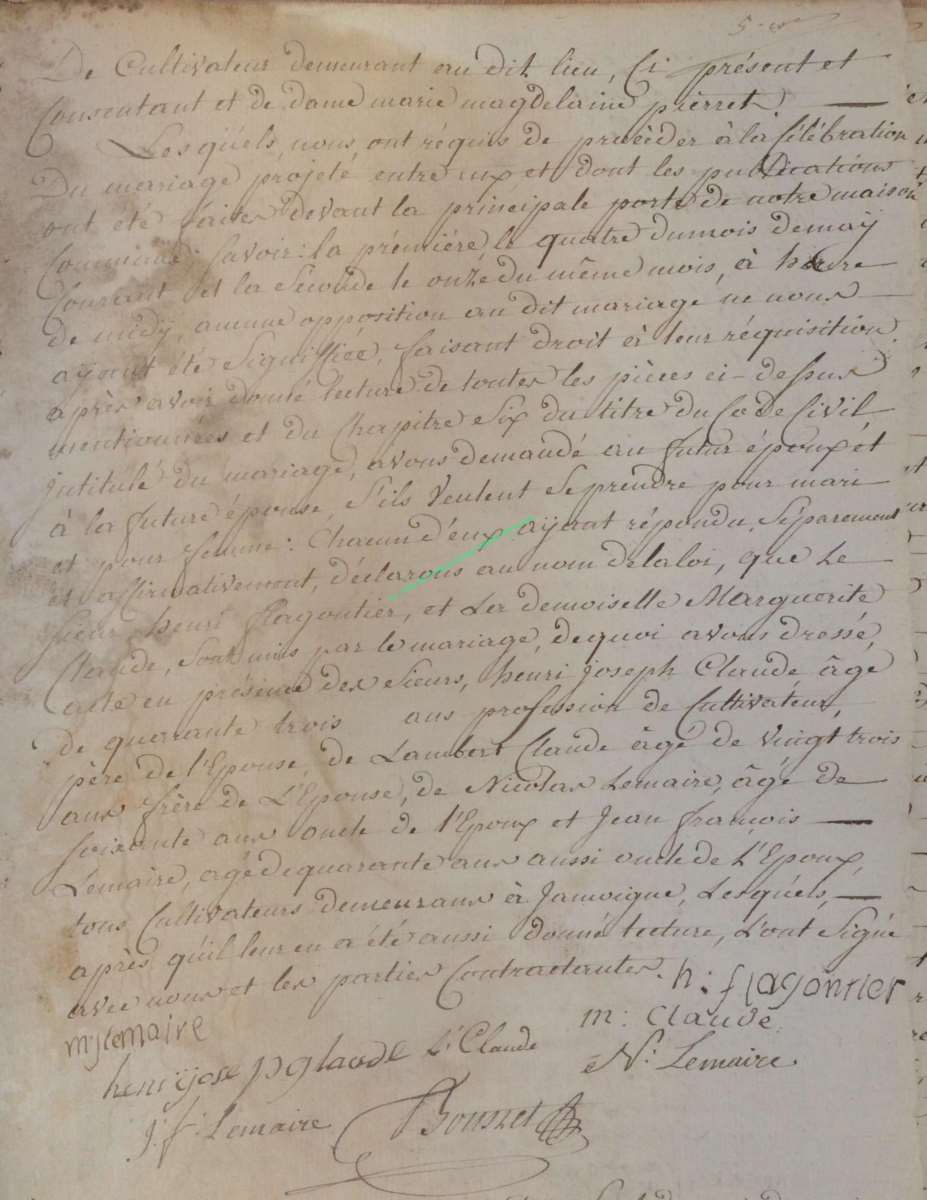 De Cultivateur demeurant au dit lieu, Ci présent et
Consentant et de dame marie magdelaine pierret
Lesquéls, nous ont réquis de procéder à la Célébration
Du mariage projété entre eux et dont les publications
ont été faites devant la principale porte de notre maison
Commune Savoir: la prémiére, le quatre du mois de maÿ
Courant et la Seconde le onze du même mois, à heure
de midÿ, aucune opposition au dit mariage ne nous
ayant été Signiffiée, faisant droit à leur réquisition,
après avoir donné lecture de toutes les pièces ci-dessus
mentionnées et du Chapitre Six du titre du Code Civil
jntitulé du mariage, avons demandé au futur époux ét
à la future épouse, S'ils veulent Se prendre pour mari
et pour femme: Chacun d'éux ayant répondu, Séparement
et affirmativement, déclarons au nom de la loi, que Le
Sieur henri flagontier, et La demoiselle Marguerite
Claude, Sont unis par le mariage, de quoi avons dressé,
acte en présence des Sieurs, henri joseph Claude âgé
De quarante trois ans profession de Cultivateur,
père de l'Epouse, de Lambert Claude âgé de vingt trois
ans frère de L'Epouse, de Nicolas Lemaire, âgé de
soixante ans oncle de l'Epoux et Jean françois
Lemaire, agé de quarante ans aussi oncle de L'Epoux,
tous Cultivateurs demeurans à Jamoigne, Lesquéls,
après qu'il leur en a été aussi donné lecture, L'ont Signé
avec nous et les parties Contractantes. h: flagontier
m j lemaire
m: Claude
henrijose p glaude L: Claude
N: Lemaire
j. f. Lemaire